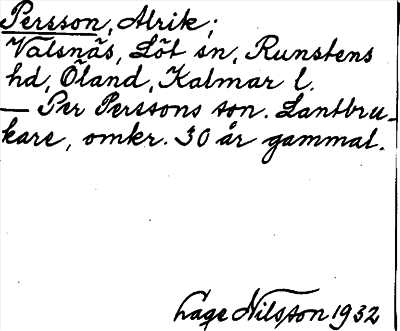 Persson, Alrik;
Valsnäs, Löt sn, Runstens
hd, Öland, Kalmar l.
— Per Perssons son. Lantbru-
kare, omkr. 30 år gammal.
Lage Nilsson 1932